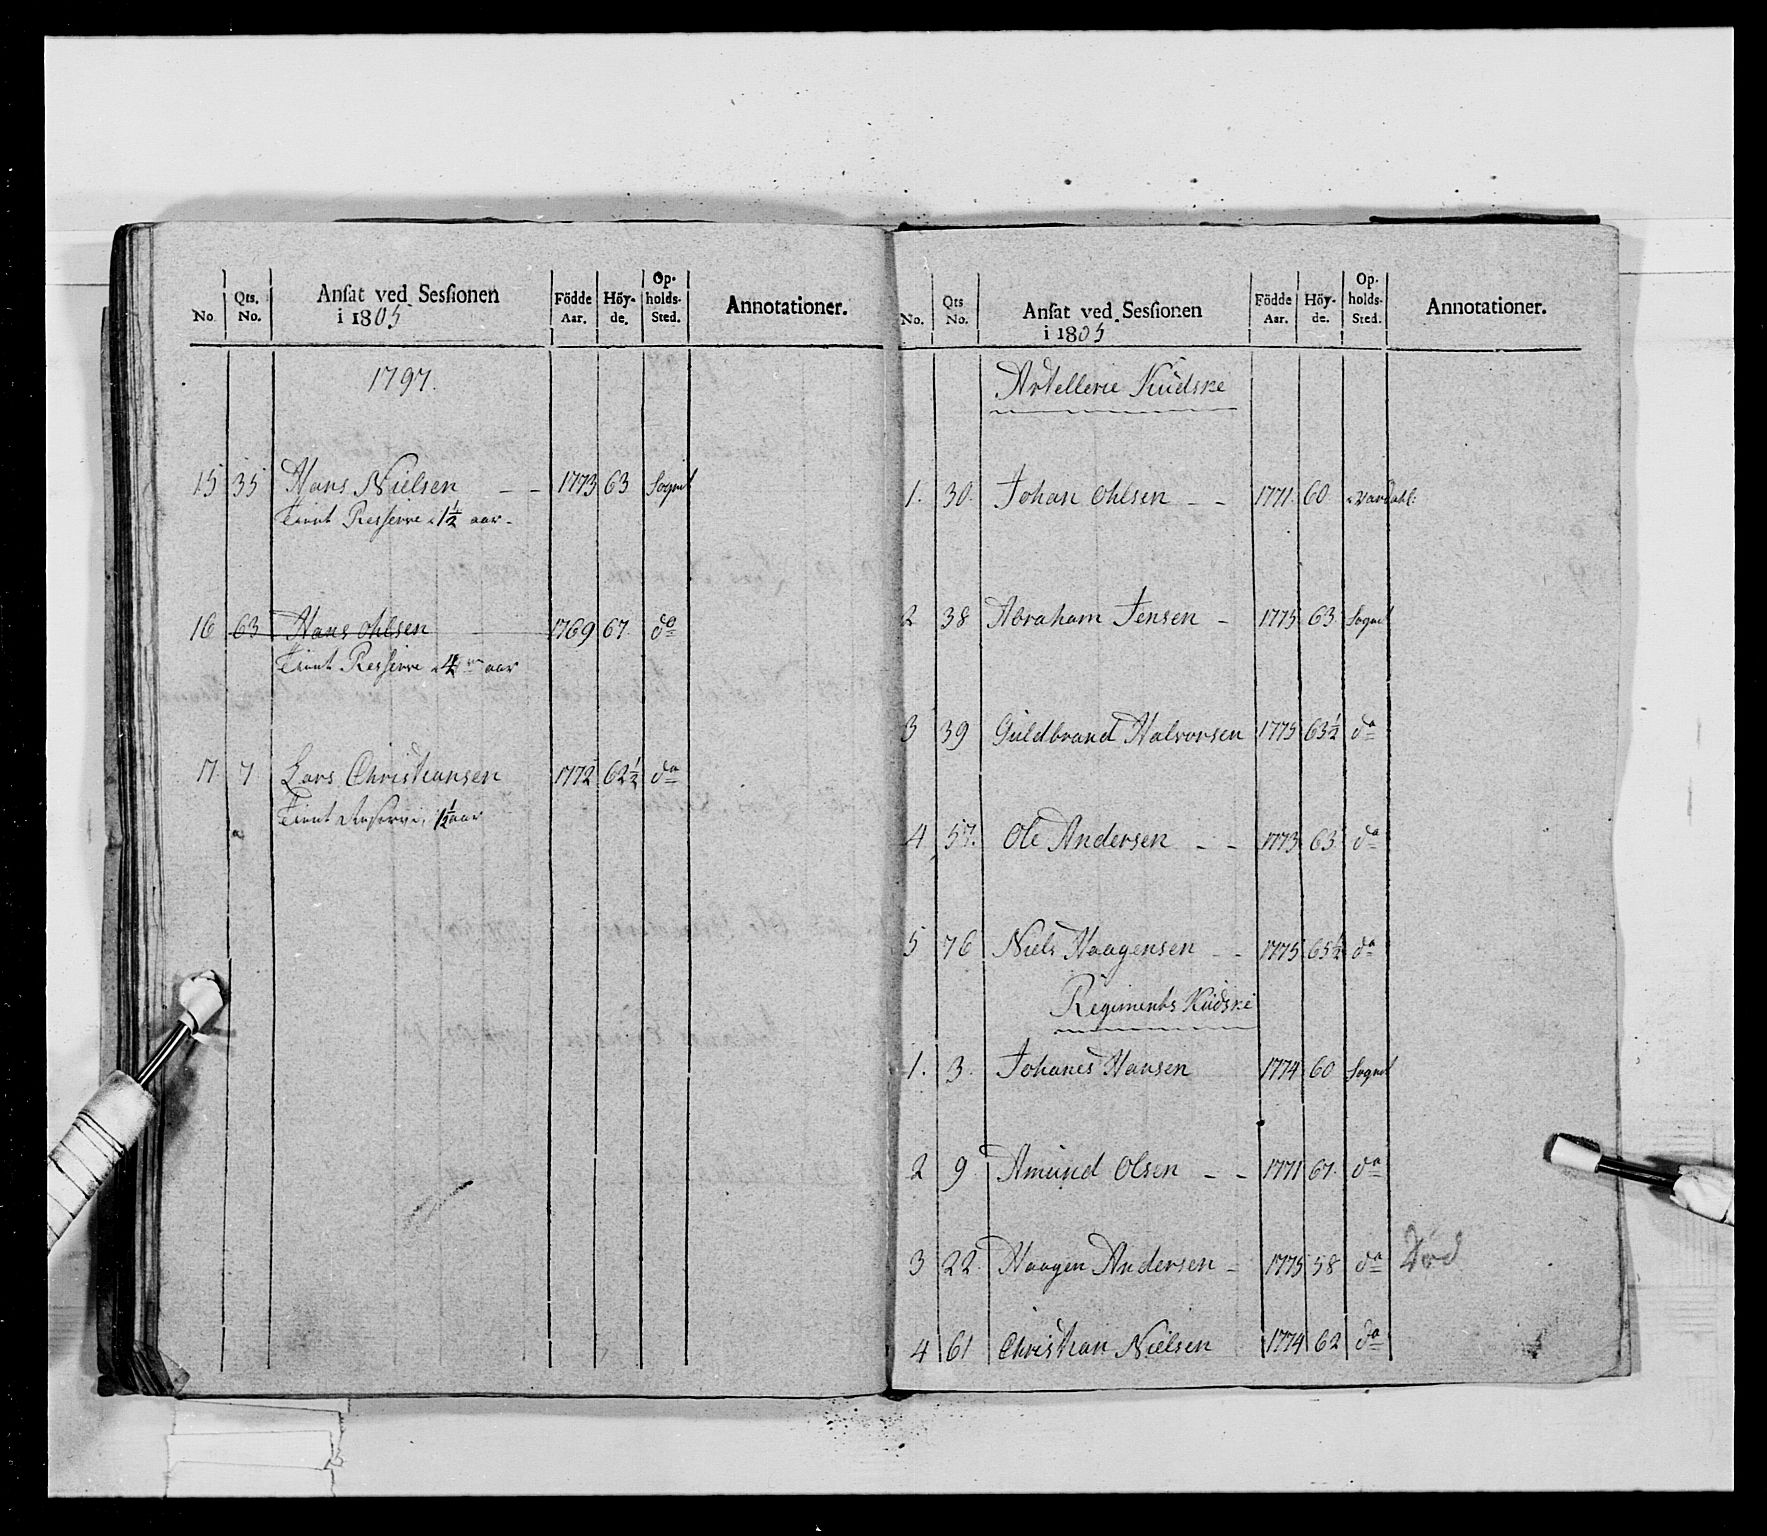 No. Qts. No. Ansat ved Sessionen i 1805 Födde Aar. Höy-de. Op-holds-Sted. Annotationer.
1797.
15 35 Hans Nielsen - - 1773 63 Sognet
Tient Resserve 1½ aar.
16 63 Hans Ohlsen 1769 67 do
Tient Resserve 4 aar
17 7 Lars Christiansen 1772 62½ do
Tient Reserve 1½ aar
No. Qts No. Ansat ved Sessionen i 1805 Födde Aar. Höy-de. Op-holds-Sted. Annotationer.
Artellerie Kudske
1. 30. Johan Ohlsen - - 1771 60 Vardahl:
2 38 Abraham Jensen - 1775 63 Sognet
3 39 Guldbrand Halvorsen 1775 63½ do
4 57. Ole Andersen - - 1773 63 do
5 76 Niels Haagensen - - 1775 65½ do
Regiments Kudske
1. 3. Johanes Hansen 1774 60 Sognet
2 9. Amund Olsen - - 1771 67. do
3 22. Haagen Andersen - 1775 58 do Död
4 61 Christian Nielsen 1774 62 do